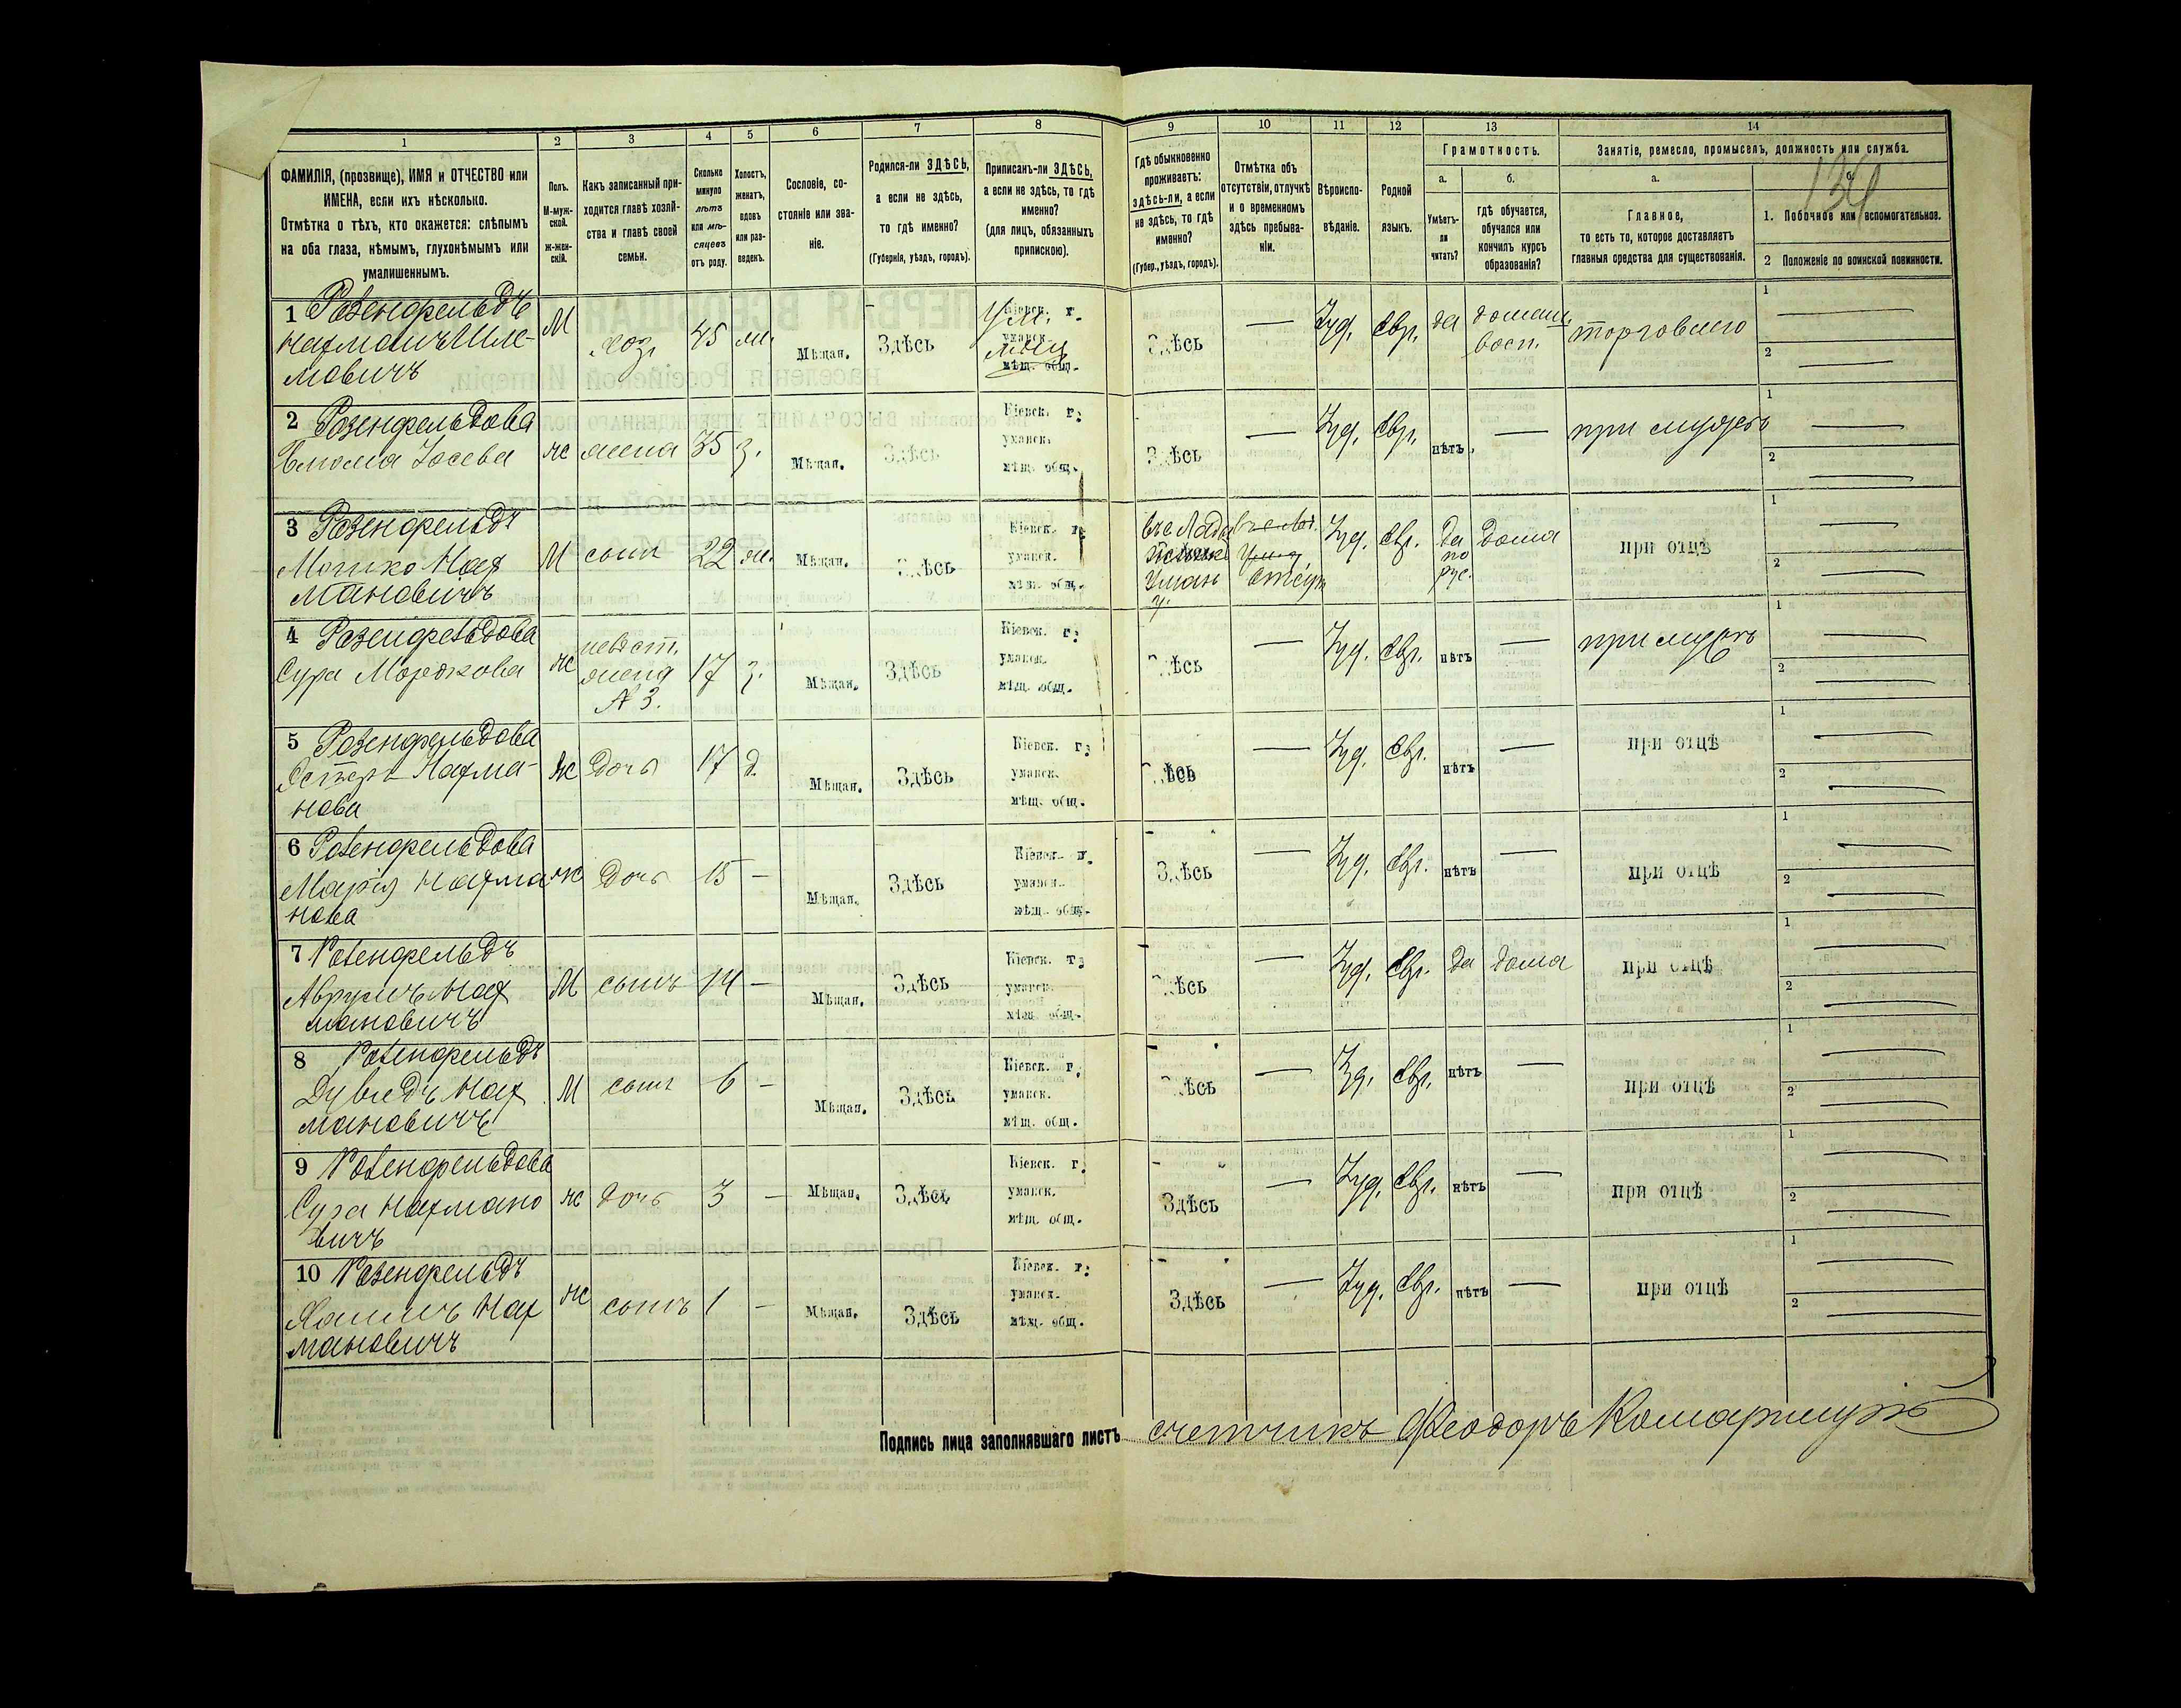 1 2 3 4 5 6 7 8 9 10 11 12 13 14
ФАМИЛІЯ, (прозвище), ИМЯ и ОТЧЕСТВО или
ИМЕНА, если ихъ нѣсколько.
Отмѣтка о тѣхъ, кто окажется: слѣпымъ
на оба глаза, нѣмымъ, глухонѣмымъ или
умалишеннымъ.
Полъ.
М-муж-
ской.
Ж-жен-
скій.
Какъ записанный при-
ходится главѣ хозяй-
ства и главѣ своей
семьи.
Сколько
минуло
лѣтъ
или мѣ-
сяцевъ
отъ роду.
Холостъ,
женатъ,
вдовъ
или раз-
веденъ.
Сословіе, со-
стояніе или зва-
ніе.
Родился-ли ЗДѢСЬ,
а если не здѣсь,
то гдѣ именно?
(Губернія, уѣздъ, городъ).
Приписанъ-ли ЗДѢСЬ,
а если не здѣсь, то гдѣ
именно?
(для лицъ, обязанныхъ
припискою).
Гдѣ обыкновенно
проживаетъ:
здѣсь-ли, а если
не здѣсь, то гдѣ
именно?
(Губер., уѣздъ, городъ).
Отмѣтка объ
отсутствіи, отлучкѣ
и о временномъ
здѣсь пребыва-
ніи.
Вѣроиспо-
вѣданіе.
Родной
языкъ.
Грамотность.
а.
Умѣетъ-
ли
читать?
б.
гдѣ обучается,
обучался или
кончилъ курсъ
образованія?
Занятіе, ремесло, промыселъ, должность или служба.
134
а.
Главное,
то есть то, которое доставляетъ
главныя средства для существованія.
б.
1. Побочное или вспомогательное.
2 Положеніе по воинской повинности.
1 Розенфельдъ
Нахманъ Шле-
мовичъ
М хоз. 45 ж. Мѣщан. Здѣсь
Кіевск. г.
уманск.
мѣщ. общ.
Здѣсь — Іуд. Евр. да домаш. восп. торговлею
1 —
2 —
2 Розенфельдова
Іосева
ж жена 35 з. Мѣщан. Здѣсь
Кіевск. г.
уманск.
мѣщ. общ.
Здѣсь — Іуд. Евр. нѣтъ — при мужѣ
1 —
2 —
3 Розенфельдъ
Мошко Нах
мановичъ
М сынъ 22 ж. Мѣщан. Здѣсь
Кіевск. г.
уманск.
мѣщ. общ.
Уман
у.
Іуд. Евр. да по рус. дома при отцѣ
1 —
2 —
4 Розенфельдова
Сура Мордкова
ж невѣст. жена № 3. 17 з. Мѣщан. Здѣсь
Кіевск. г.
уманск.
мѣщ. общ.
Здѣсь — Іуд. Евр. нѣтъ — при мужѣ
1 —
2 —
5 Розенфельдова
Естеръ Нахма-
нова
Ж дочь 17 д. Мѣщан. Здѣсь
Кіевск. г.
уманск.
мѣщ. общ.
Здѣсь — Іуд. Евр. нѣтъ — при отцѣ
1 —
2 —
6 Розенфельдова
Марія Нахма
нова
ж дочь 15 — Мѣщан. Здѣсь
Кіевск. г.
уманск.
мѣщ. общ.
Здѣсь — Іуд. Евр. нѣтъ — при отцѣ
1 —
2 —
7 Розенфельдъ
Аврумъ Нах
мановичъ
М сынъ 14 — Мѣщан. Здѣсь
Кіевск. г.
уманск.
мѣщ. общ.
Здѣсь — Іуд. Евр. да дома при отцѣ
1 —
2 —
8 Розенфельдъ
Дувидъ Нах
мановичъ
М сынъ 6 — Мѣщан. Здѣсь
Кіевск. г.
уманск.
мѣщ. общ.
Здѣсь — Іуд. Евр. нѣтъ — при отцѣ
1 —
2 —
9 Розенфельдова
Сура Нахмано
вичъ
ж дочь 3 — Мѣщан. Здѣсь
Кіевск. г.
уманск.
мѣщ. общ.
Здѣсь — Іуд. Евр. нѣтъ — при отцѣ
1 —
2 —
10 Розенфельдъ
Нах
мановичъ
ж сынъ 1 — Мѣщан. Здѣсь
Кіевск. г.
уманск.
мѣщ. общ.
Здѣсь — Іуд. Евр. нѣтъ — при отцѣ
1 —
2 —
Подпись лица заполнявшаго листъ счетчикъ Феодоръ